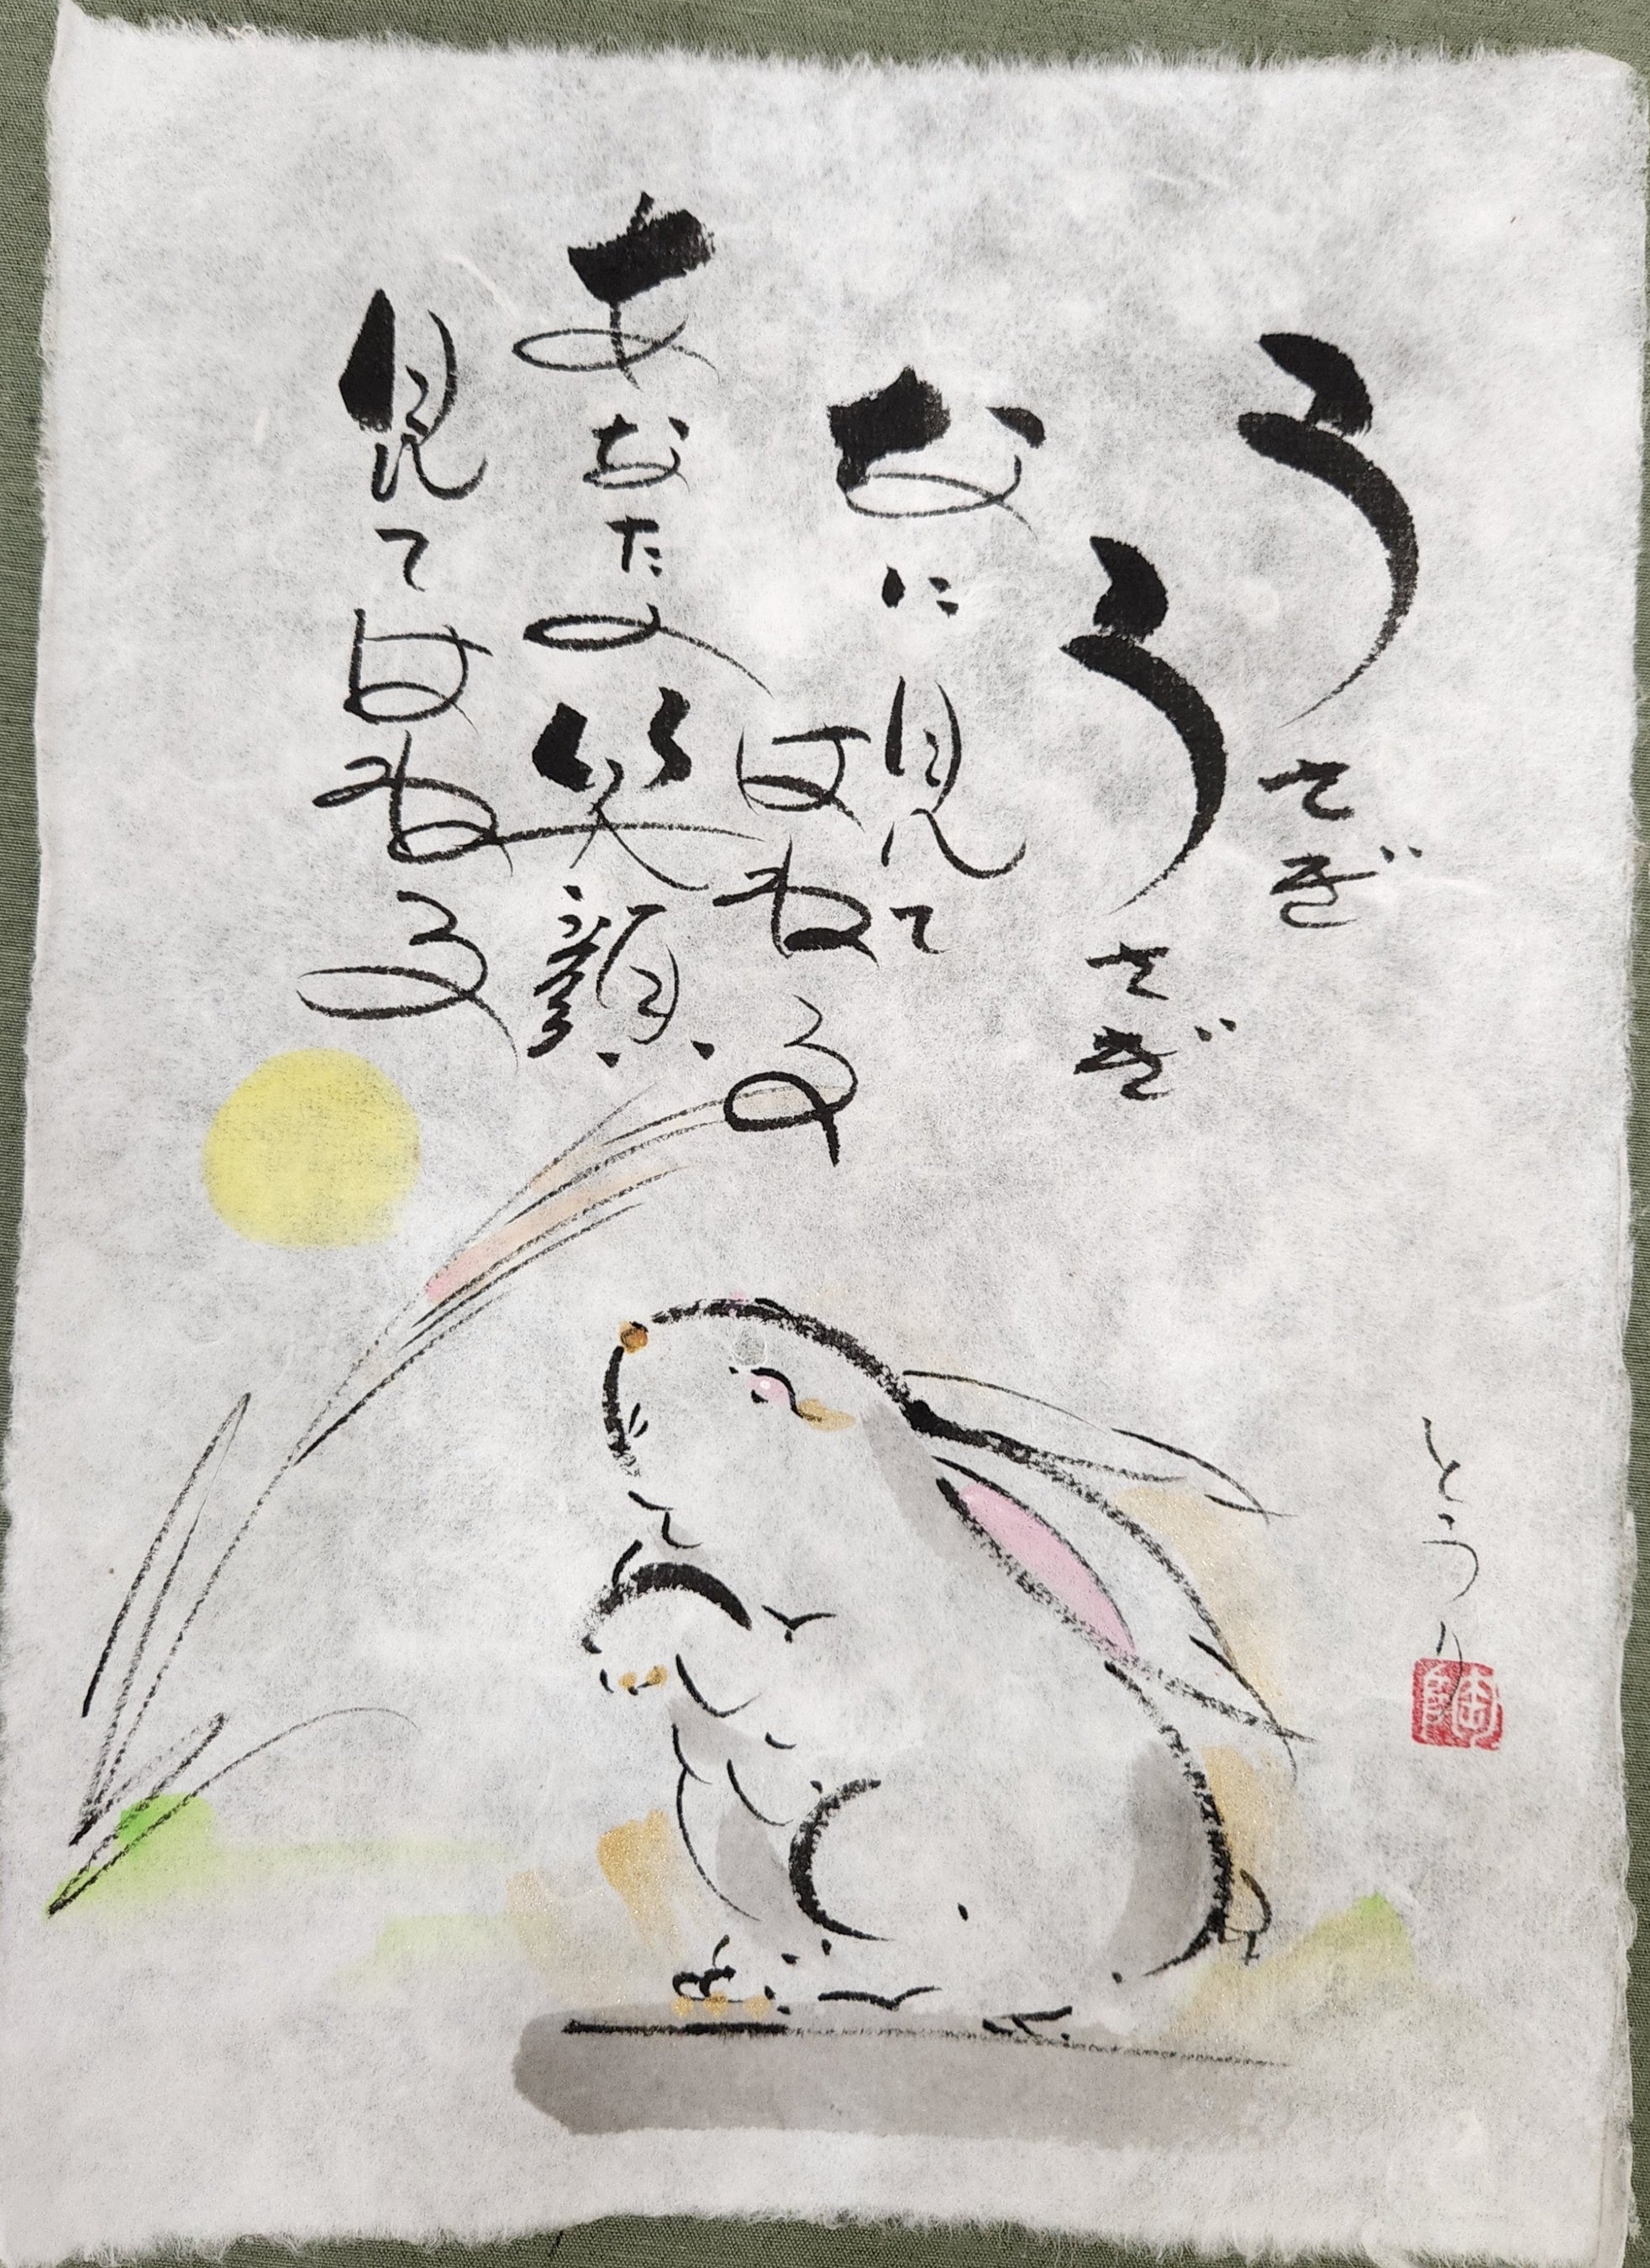 うさぎ
うさぎ
なに見て
はねる
あなたの笑顔
見てはねる